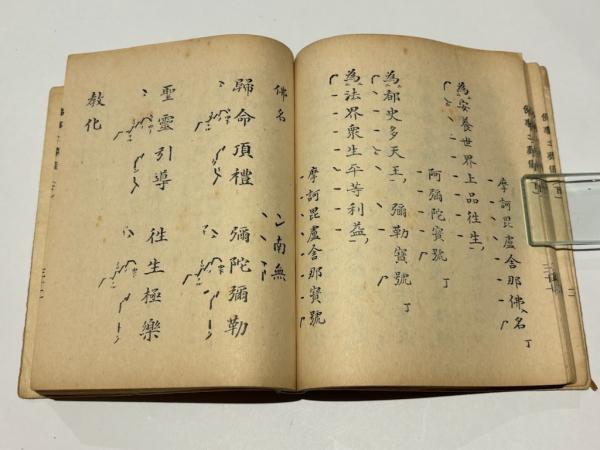 摩訶毘盧舍那佛名丁
為安養世界上品往生、
阿彌陀寳號丁
為都史多天王、彌勒寳號丁
為法界衆生平等利益、
摩訶毘盧舍那寳號
佛名
南無
歸命頂禮 彌陀彌勒
聖靈引導 往生極樂
教化